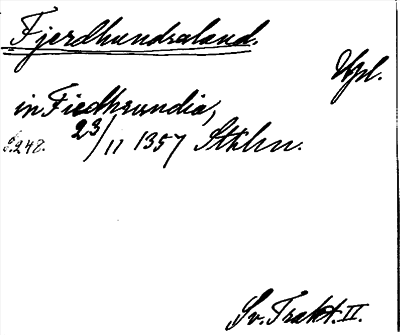 Fjerdhundraland.
Upl.
in Fiedhrundia,
s. 248. 23/11 1357 Sthlm.
Sv. Trakt. II.